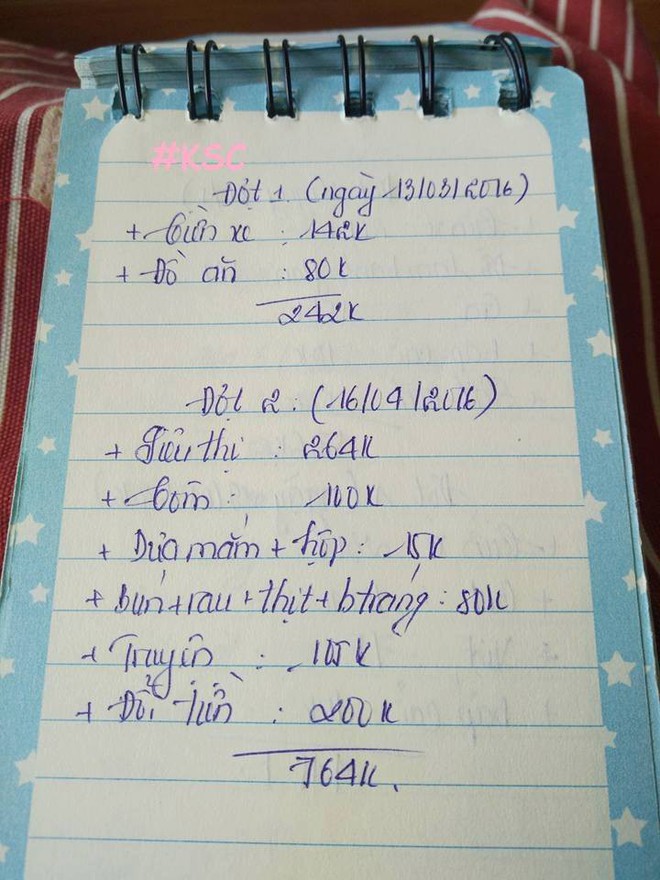 #KSC
Đợt 1. (ngày 13/03/2016)
+ Tiền xe : 142k
+ Đồ ăn : 80k
242k
Đợt 2 : (16/04/2016)
+ Siêu thị : 264k
+ Cơm : 100k
+ Dưa mắm + hộp : 15k
+ bún + rau + thịt + btráng : 80k
+ Truyện : 105k
+ Đổi tiền : 200k
764k.